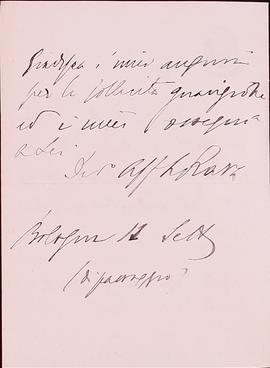 Gradisca i miei auguri
per la sollecita guarigione
ed i miei ossequi
a Lei
Bologna 12 Sett
(di passaggio)